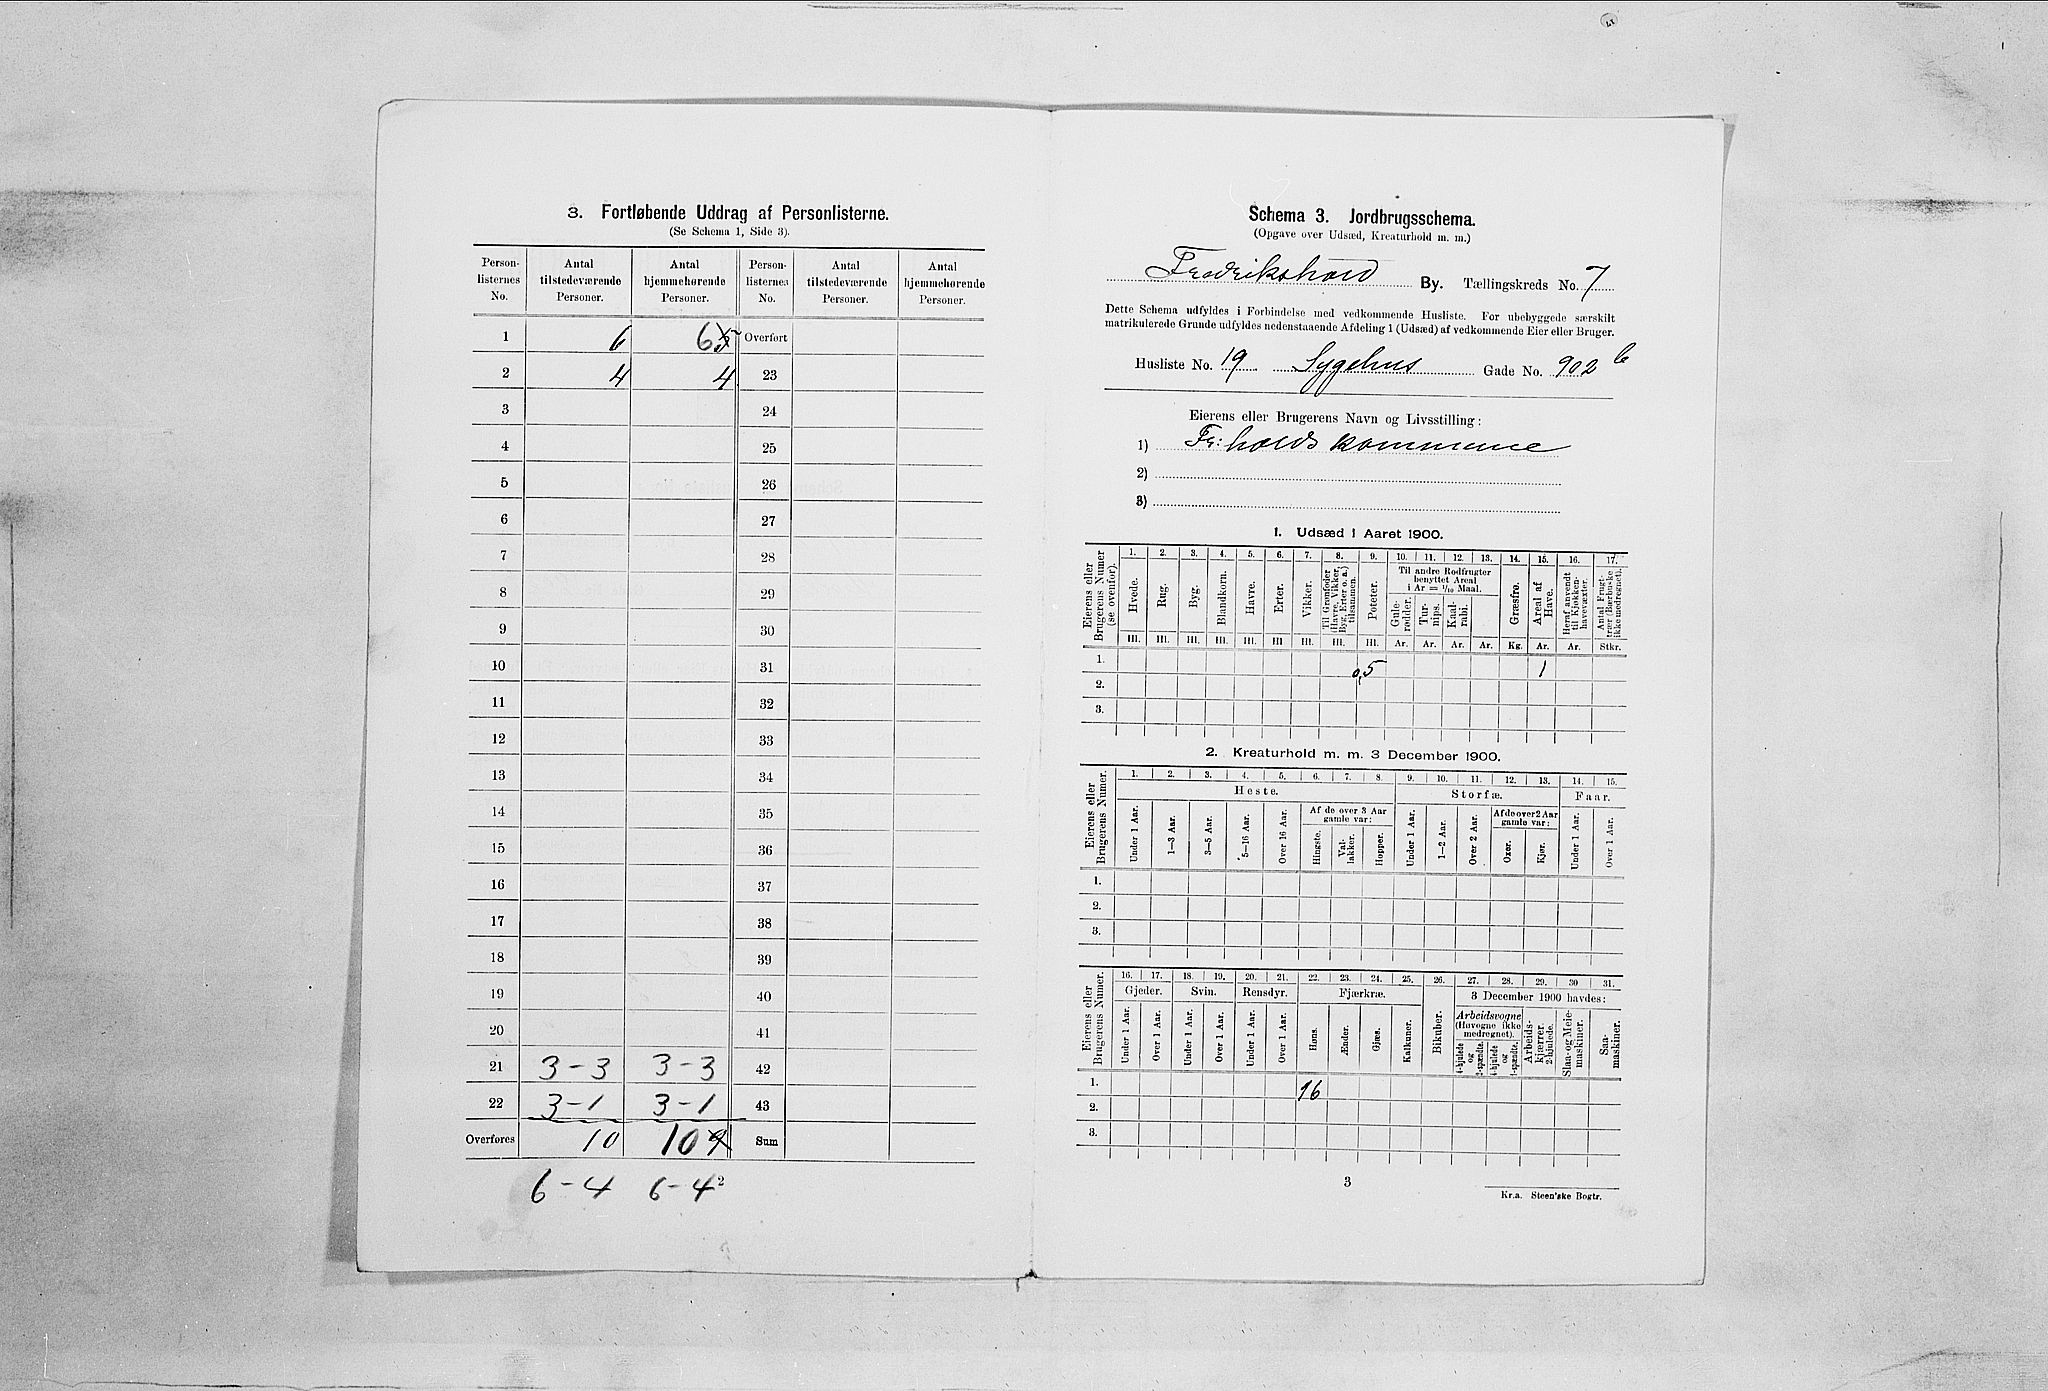 3. Fortløbende Uddrag af Personlisterne.
(Se Schema 1, Side 3).
Person-listernes No. Antal tilstedeværende Personer. Antal hjemmehørende Personer. Person-listernes No. Antal tilstedeværende Personer. Antal hjemmehørende Personer.
1 6 6 5 Overført
2 4 4 23
3 24
4 25
5 26
6 27
7 28
8 29
9 30
10 31
11 32
12 33
13 34
14 35
15 36
16 37
17 38
18 39
19 40
20 41
21 3-3 3-3 42
22 3-1 3-1 43
Overføres 10 10 9 Sum
6-4 6-4 2
Schema 3. Jordbrugsschema.
(Opgave over Udsæd, Kreaturhold m. m.)
Fredrikshald By. Tællingskreds No. 7
Dette Schema udfyldes i Forbindelse med vedkommende Husliste. For ubebyggede særskilt
matrikulerede Grunde udfyldes nedenstaaende Afdeling 1 (Udsæd) af vedkommende Eier eller Bruger.
Husliste No. 19 Sygehus Gade No. 902 b
Eierens eller Brugerens Navn og Livsstilling:
1) Fr:halds kommune
2)
3)
1. Udsæd i Aaret 1900.
Eierens eller Brugerens Numer (se ovenfor).
1. 2. 3. 4. 5. 6. 7. 8. 9. 10. 11. 12. 13. 14. 15. 16. 17.
Til andre Rodfrugter benyttet Areal i Ar = 1/10 Maal.
Hvede. Rug. Byg. Blandkorn. Havre. Erter. Vikker. Til Grønfoder (Havre, Vikker, Byg, Erter o. a.) tilsammen. Poteter. Gule-rødder. Tur-nips. Kaal-rabi. Græsfrø. Areal af Have. Heraf anvendt til Kjøkken-havevæxter. Antal Frugt-trær (Bærbuske ikke medregnet).
Hl. Hl. Hl. Hl. Hl. Hl Hl. Hl. Hl. Ar. Ar. Ar. Ar. Kg. Ar. Ar. Stkr.
1. 0,5 1
2.
3.
2. Kreaturhold m. m. 3 December 1900.
Eierens eller Brugerens Numer.
1. 2. 3. 4. 5. 6. 7. 8. 9. 10. 11. 12. 13. 14. 15.
Heste. Storfæ. Faar.
Af de over 3 Aar gamle var: Af de over 2 Aar gamle var:
Under 1 Aar. 1—3 Aar. 3—5 Aar. 5—16 Aar. Over 16 Aar. Hingste. Val-lakker. Hopper. Under 1 Aar. 1—2 Aar. Over 2 Aar. Oxer. Kjør. Under 1 Aar. Over 1 Aar.
1.
2.
3.
Eierens eller Brugerens Numer.
16. 17. 18. 19. 20. 21. 22. 23. 24. 25. 26. 27. 28. 29. 30 31.
Gjeder. Svin. Rensdyr. Fjærkræ. 3 December 1900 havdes:
Arbeidsvogne (Havogne ikke medregnet).
Under 1 Aar. Over 1 Aar. Under 1 Aar. Over 1 Aar. Under 1 Aar. Over 1 Aar. Høns. Ænder. Gjæs. Kalkuner. Bikuber. 4-hjulede og 2-spændte. 4-hjulede og 1-spændte. Arbeids-kjærrer. 2-hjulede. Slaa- og Meie-maskiner. Saa-maskiner.
1. 16
2.
3.
3
Kr.a. Steen'ske Bogtr.